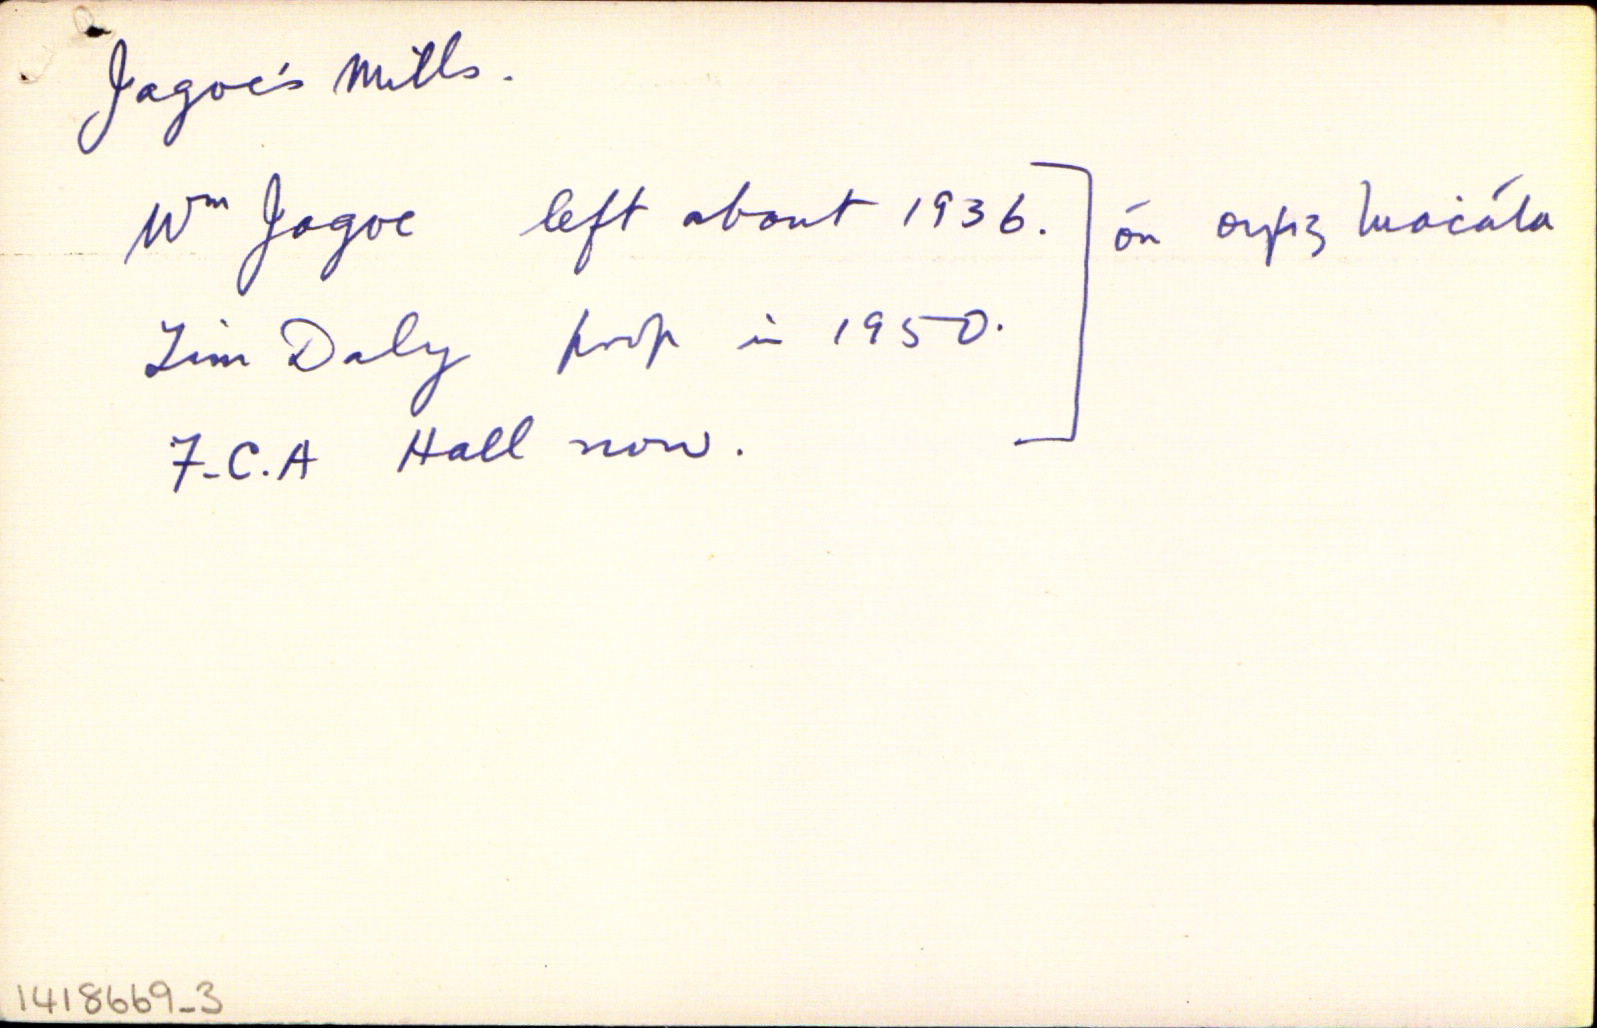 Jagoe's Mills.
Wm Jagoe left about 1936. ] ón oifig luaċála
Tim Daly prop in 1950.
F.C.A Hall now.
1418669_3